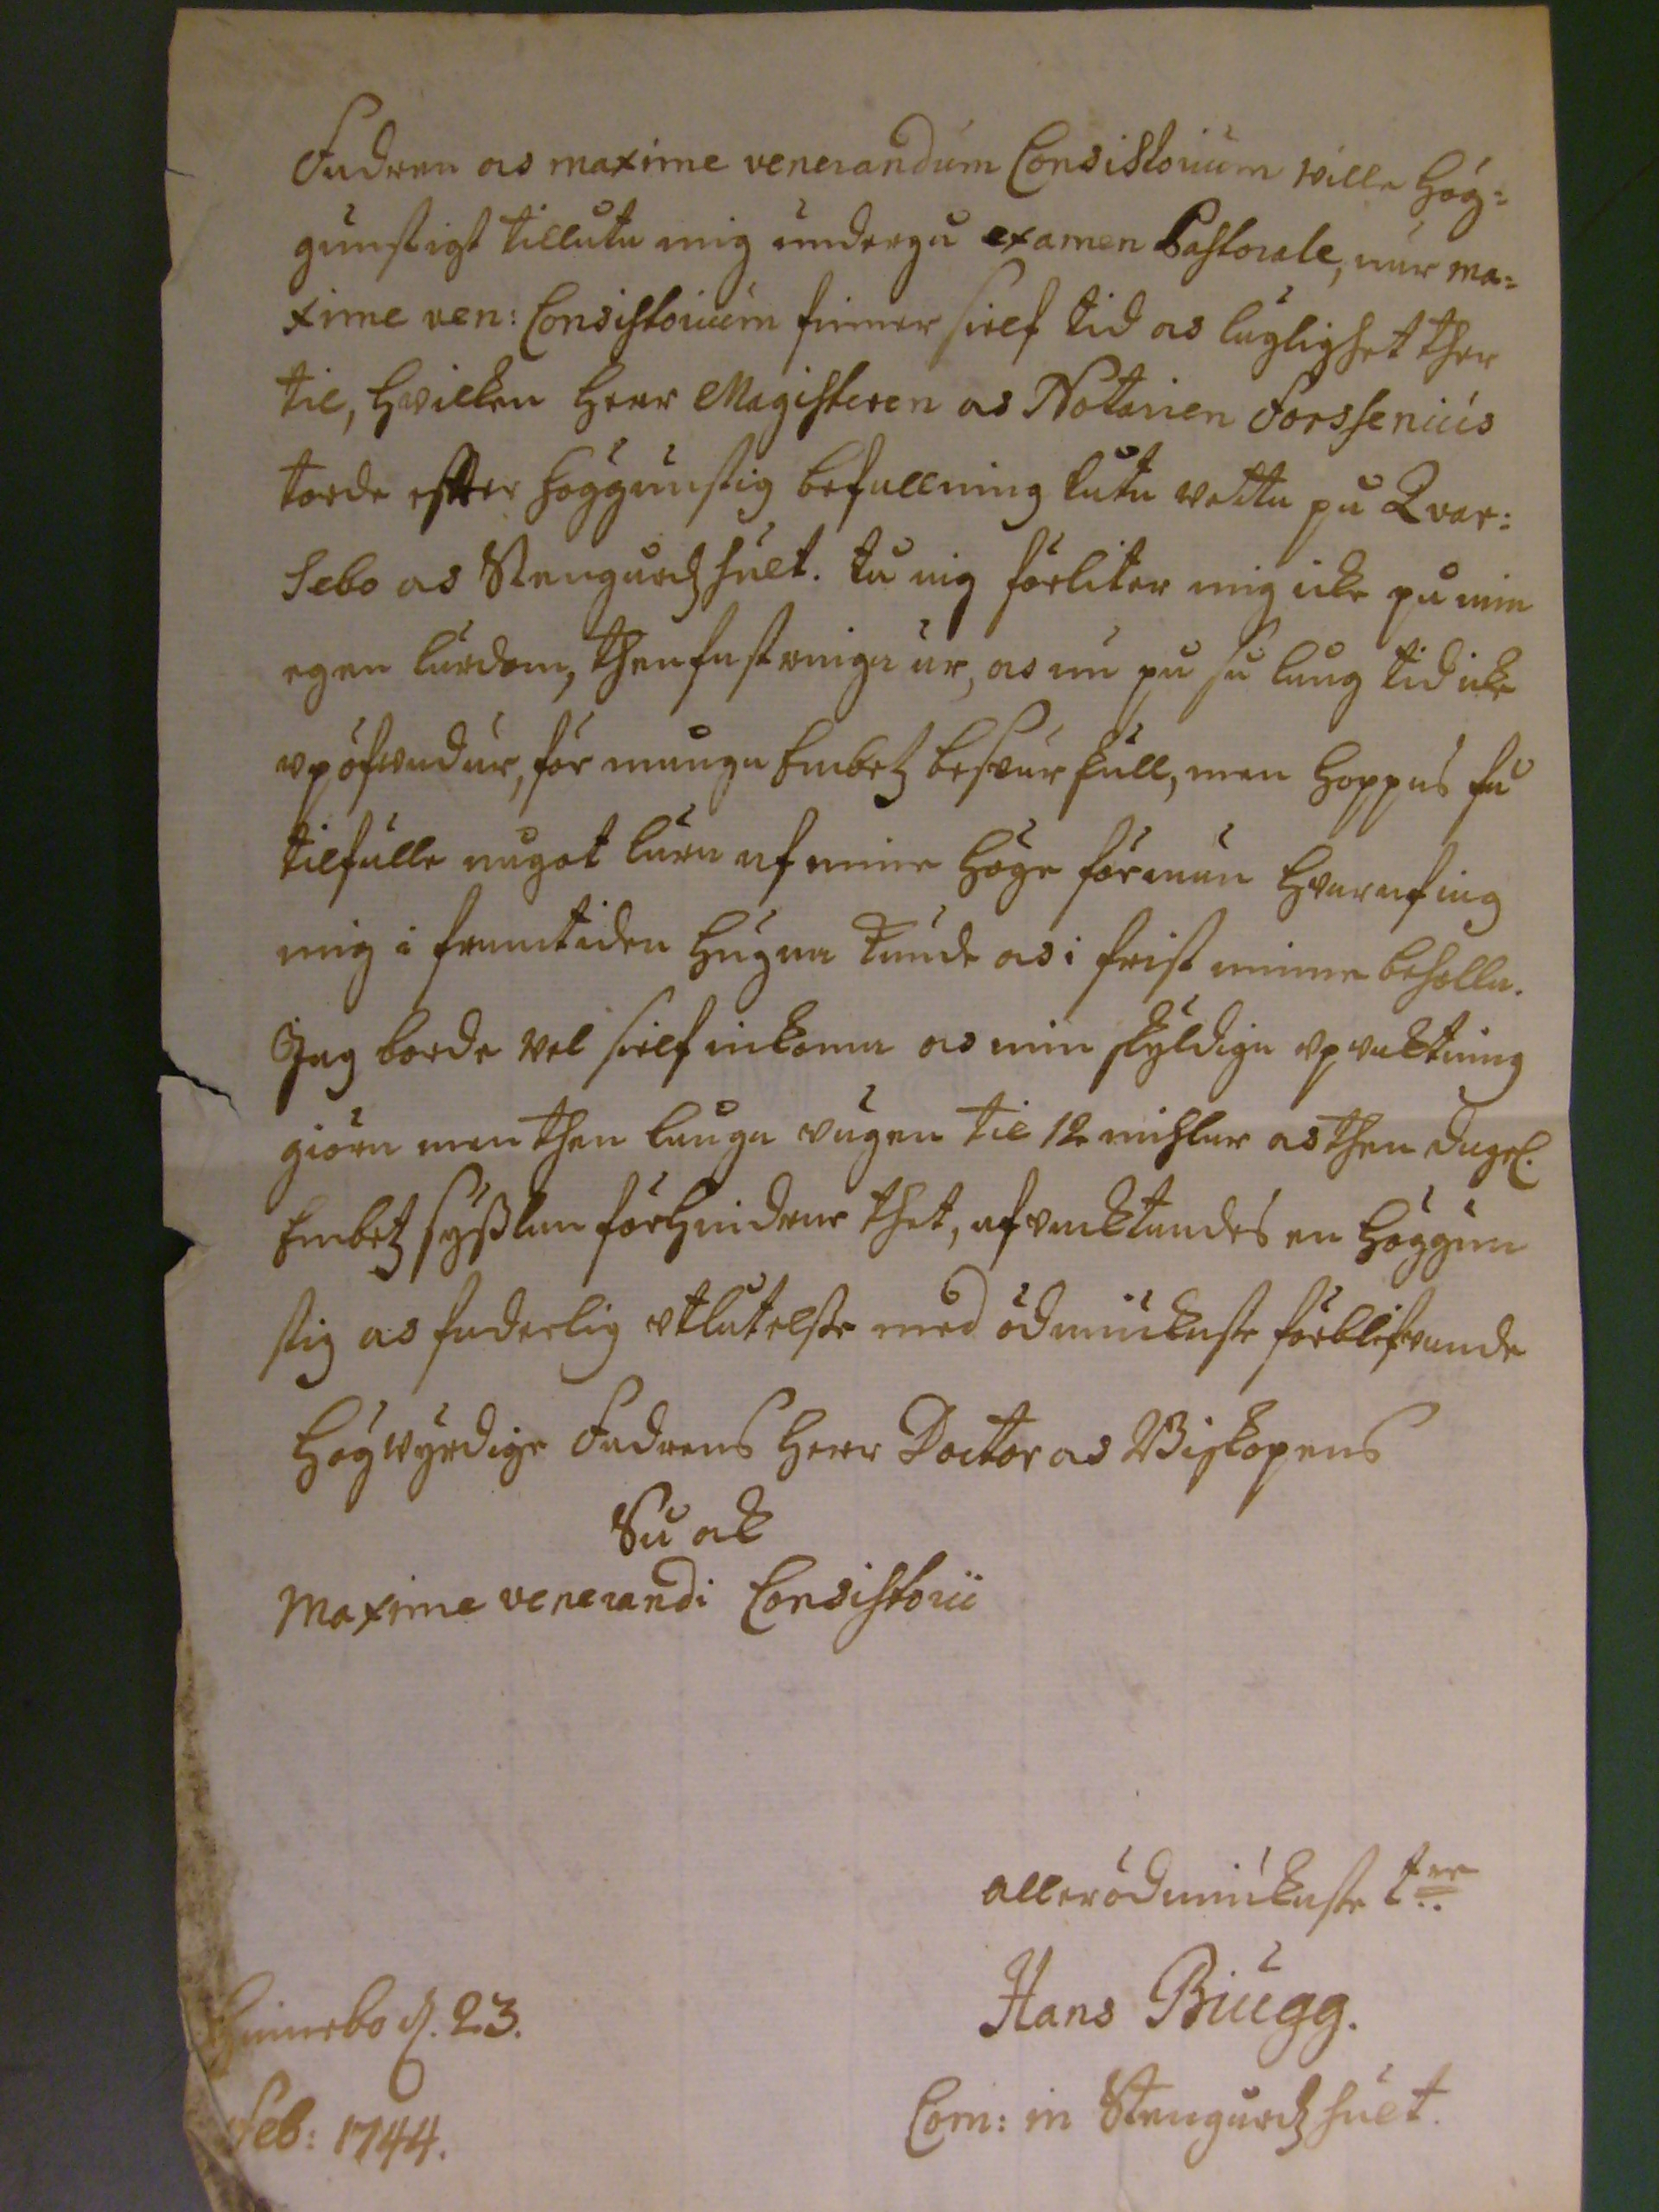 Fadren os maxime venerandum Consistorium wille hög=
gunstigst tillåta mig undergå examen Pastorale, när ma=
xime ven: Consistorium finner sielf tid os läglighet ther
til, hvilken Herr Magisteren os Notarien Forssenius
torde efter höggunstig befallning låta vetta på Qvar=
sebo os Stengårdzhult. Tå iag förliter mig icke på min
egen lärdom, then fast ringa är, os nu på så lång tid icke
vpöfvad är, för många Embetz besvär skull, men hoppas få
tilfälle något lära af mine höge förmän hvaraf iag
mig i framtiden hugna kunde os i frist minne beholla.
Jag borde vel sielf inkoma os min skyldiga vpvaktning
giöra men then långa vägen til 12 mihlar os then dagel.
Embetz sysslan förhindrar thet, afvacktandes en höggun
stig os faderlig vtlåtelsse med ödmiukaste förblifvande
Högwyrdige Fadrens Herr Doctor os Biskopens
Så ock
Maxime venerandi Consistorii
allerödmiukaste tienare
Hans Biugg.
Com: in Stengårdzhult.
d. 23.
Feb: 1744.